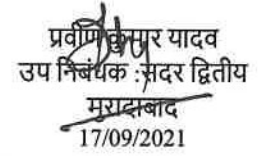 प्रवीण कुमार यादव
उप निबंधक :सदर द्वितीय
मुरादाबाद
17/09/2021